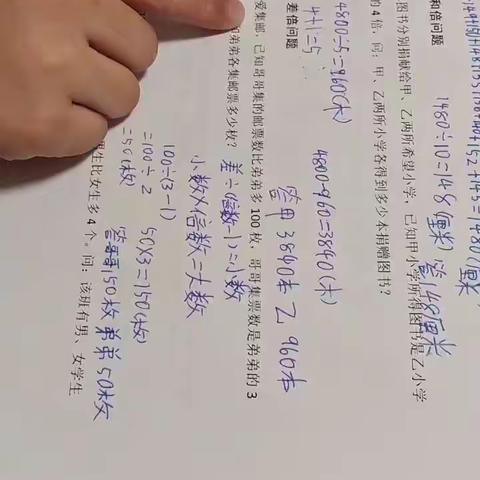 1480÷10=148(厘米) 答148厘米
和倍问题
图书分别捐献给甲、乙两所希望小学，已知甲小学所得图书是乙小学
的4倍，问：甲、乙两所小学各得到多少本捐赠图书？
4+1=5
4800÷5=960(本)
4800-960=3840(本)
答甲3840本乙960本
差倍问题
爱集邮，已知哥哥集的邮票数比弟弟多100枚，哥哥集票数是弟弟的3
弟弟各集邮票多少枚？
差÷(倍数-1)=小数
小数×倍数=大数
100÷(3-1)
=100÷2
=50(枚)
50×3=150(枚)
答哥哥150枚弟弟50枚
男生比女生多4个。问：该班有男、女学生